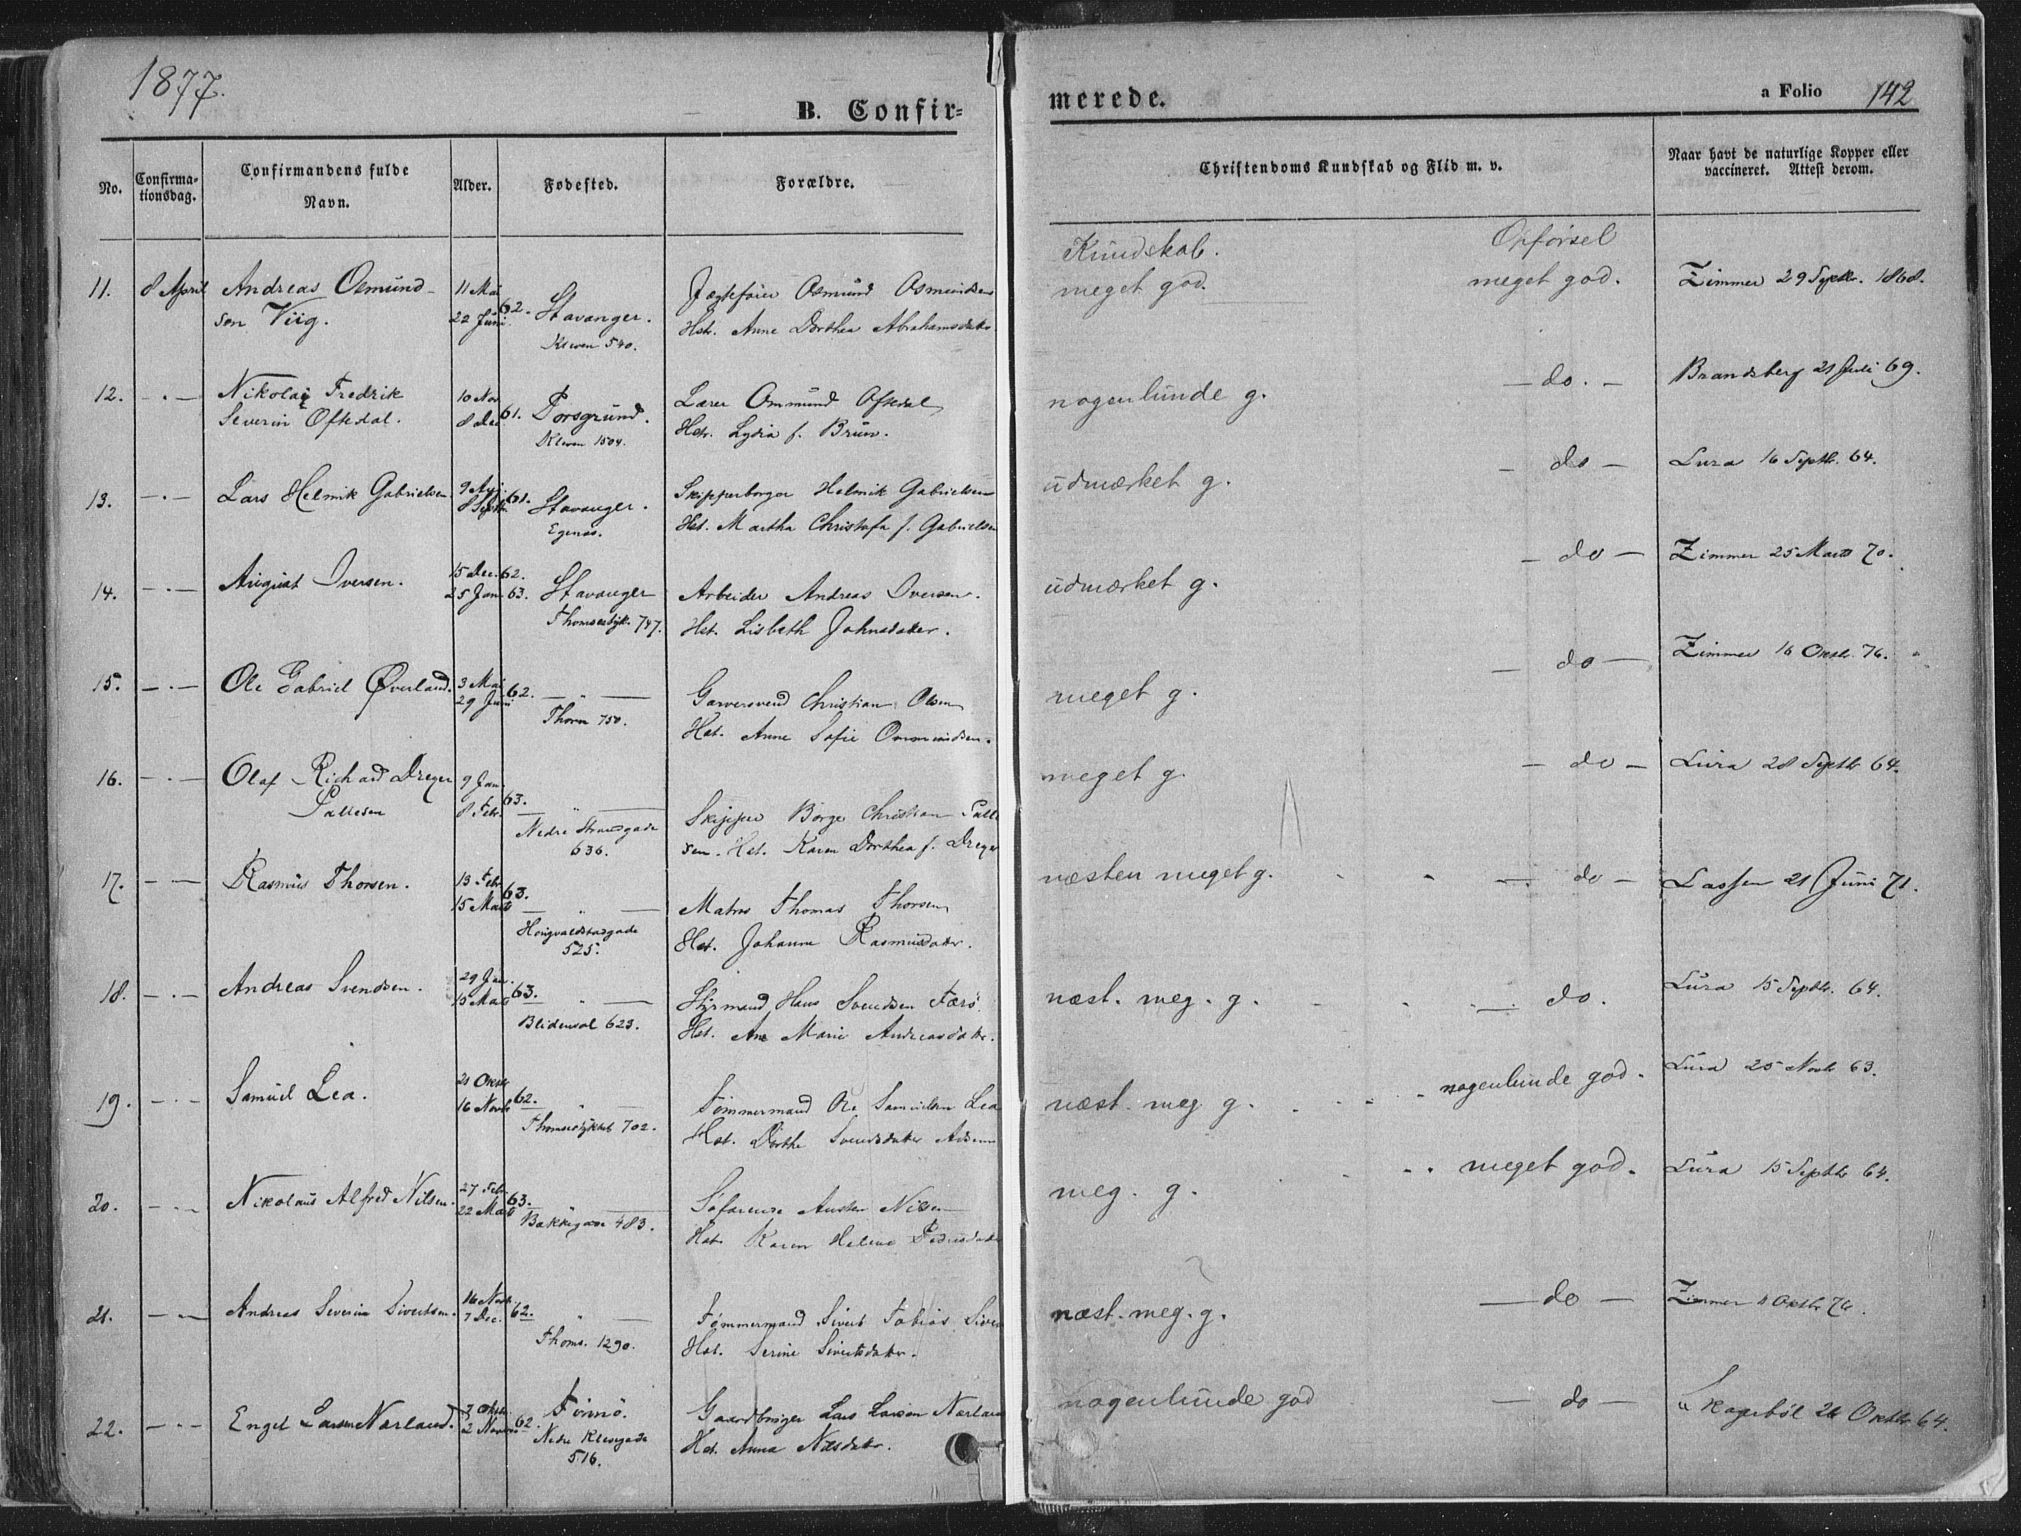 1877.
B. Confir-
merede.
a Folio 142
No.
Confirma-
tionsdag.
Confirmandens fulde
Navn.
Alder.
Fødested.
Forældre.
Christendoms Kundskab og Flid m. v.
Naar havt de naturlige Kopper eller
vaccineret. Attest derom.
Kundskab.
Opførsel
11. 8 April Andreas Osmund- 11 Mai 62. Stavanger.
sen Viig. 22 Juni Kleven 540.
Osmund Osmundsen
Hst. Anne Dorthea Abrahamsdatter
meget god. meget god. Zimmer 29 Septbr. 1868.
12. - " - Nikolai Fredrik 10 Nov 61. Porsgrund.
Severin Oftedal. 8 Dec Kleven 1504.
Lærer Ommund Oftedal
Hstr. Lydia f. Bruun.
nogenlunde g. - do. - Brandsberg 21 Juli 69.
13. - " - Lars Helmik Gabrielsen 9 Aug. 61. Stavanger.
8 Septbr Egenæs.
Skipperborger Helmik Gabrielsen
Hst. Martha Christofa f. Gabrielsen
udmærket g. - do - Lura 16 Septbr. 64.
14. - " - August Iversen. 15 Dec. 62. Stavanger
25 Jan 63. 787.
Arbeider Andreas Iversen.
Hst. Lisbeth Johnsdatter.
udmærket g. - do - Zimmer 25 Marts 70.
15. - " - Ole Gabriel Øverland. 3 Mai 62. - " -
29 Juni Thorn 750.
Garversvend Christian Olsen
Hst. Anne Sofie Ommundsen.
meget g. - do - Zimmer 16 Oktbr. 76.
16. - " - Olaf Richard Dreyer 9 Jan 63. - " -
Sallesen 8 Febr. Nedre Strandgade
636.
Skipper Børge Christian Salle
sen. Hst. Karen Dorthea f. Dreyer
meget g. - do - Lura 28 Septbr 64.
17. - " - Rasmus Thorsen. 13 Febr 63. - " -
15 Marts 525.
Matros Thomas Thorsen
Hst. Johanne Rasmusdatter.
næsten meget g. - do - Lassen 21 Juni 71.
18. - " - Andreas Svendsen. 29 Jan. 63. - " -
15 Marts Blidensol 623.
Styrmand Hans Svendsen Færø
Hst. Ane Marie Andreasdatter.
næst. meg. g. - do. Lura 15 Septbr. 64.
19. - " - Samuel Lea. 21 Oktbr 62. - " -
16 Novbr 702.
Tømmermand Ole Samuelsen Lea
Hst. Dorthe Svendsdatter
næst. meg g. nogenlunde god. Lura 25 Novbr 63.
20. - " - Nikolaus Alfred Nilsen. 27 Febr 63. - " -
22 Marts 483.
Søfarende Nilsen
Hst. Karen Helene Pedersdatter
meg. g. meget god. Lura 15 Septbr 64.
21. - " - Andreas Severin Sivertsen. 16 Novbr. 62. - " -
7 Dec. Thoms. 1290.
Tømmermand Sivert Tobias
Hst. Serine Sivertsdatter.
næst. meg. g. - do - Zimmer Oktbr 76.
22. - " - Engel Larsen Nærland. 3 Oktbr. 62.
2 Novbr 516.
Lars Larsen Nærland
Hst. Anna Nilsdatter.
nogenlunde god - do - 26 Oktbr 64.